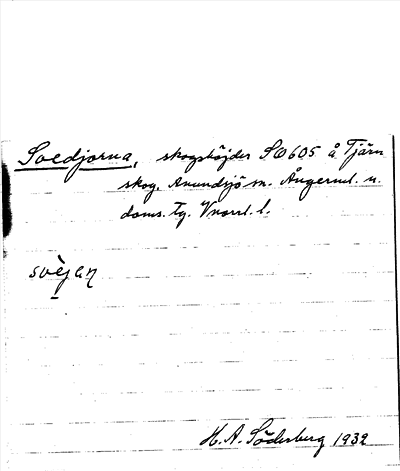 Svedjorna, skogshöjder SO 605 å Tjärn
skog. Anundsjö sn. Ångerml. n.
doms. tg. Vnorrl. l.
svèjaṇ
H. A. Söderberg 1932